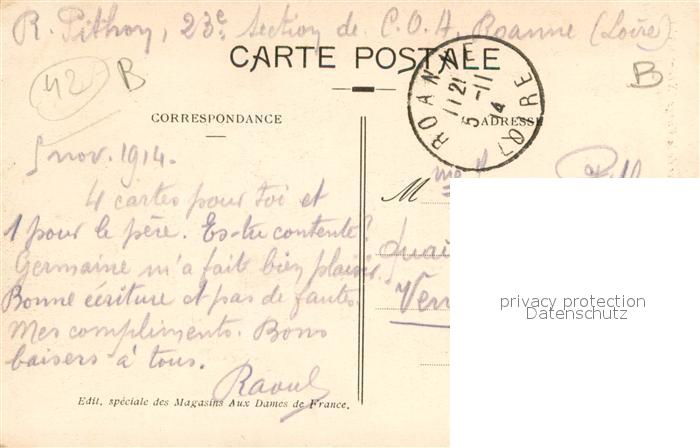 R. Pithon, 23e Section de C.O.A. Roanne (Loire)
CARTE POSTALE
42 B
B
ROANNE
1121
5-11
14
LOIRE
CORRESPONDANCE
ADRESSE
5 nov. 1914.
4 cartes pour toi et
1 pour le père. Es-tu contente?
Germaine m'a fait bien plaisir.
Bonne écriture et pas de fautes.
Mes compliments. Bons
baisers à tous.
Raoul
M
Quai
Edit. spéciale des Magasins Aux Dames de France.
privacy protection
Datenschutz